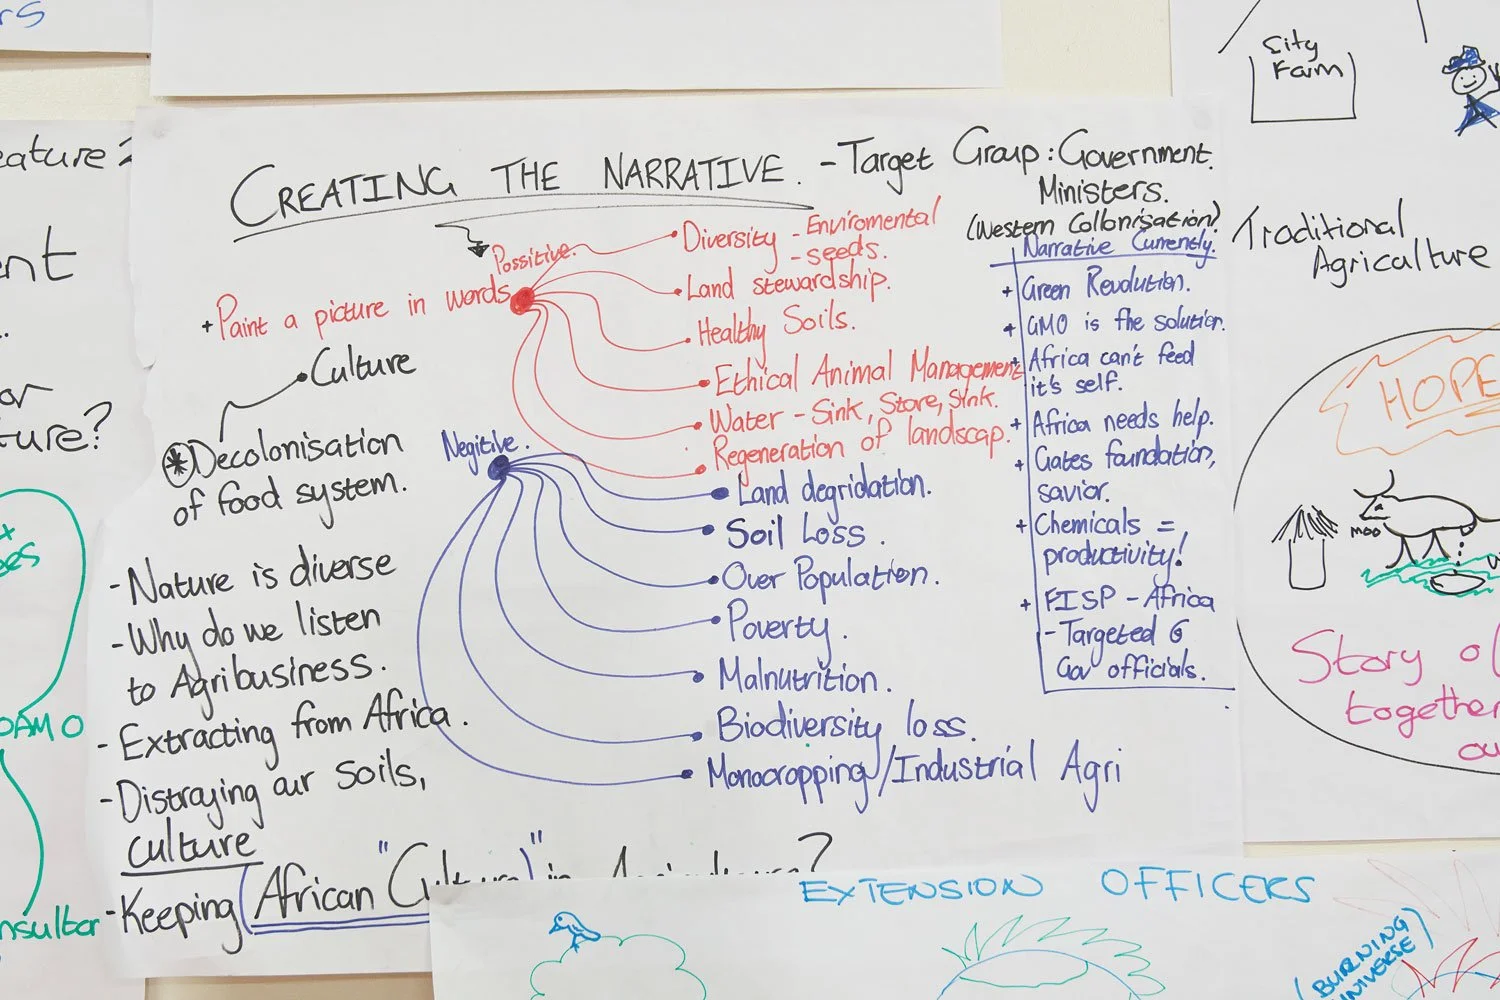 CREATING THE NARRATIVE. - Target Group : Government
Ministers.
(Western Collonisation)
+ Paint a picture in words
Possitive.
Diversity - Enviromental
- seeds.
Land stewardship.
Healthy Soils.
Ethical Animal Management
Water - Sink, Store, Sink.
Regeneration of landscap.
Culture
Decolonisation
of food system.
- Nature is diverse
- Why do we listen
to Agribusiness.
- Extracting from Africa.
- Distraying our soils,
culture
- Keeping (African "Culture)" in
?
Negitive.
Land degridation.
Soil Loss.
Over Population.
Poverty.
Malnutrition.
Biodiversity loss.
Monocropping/Industrial Agri
Narrative Currently.
+ Green Revolution.
+ GMO is the solution.
+ Africa can't feed
it's self.
+ Africa needs help.
+ Gates foundation,
savior.
+ Chemicals =
productivity!
+ FISP - Africa
- Targeted G
Gov officials.
City
Farm
Traditional
Agriculture
HOPE
moo
Story
together
EXTENSION OFFICERS
(BURNING